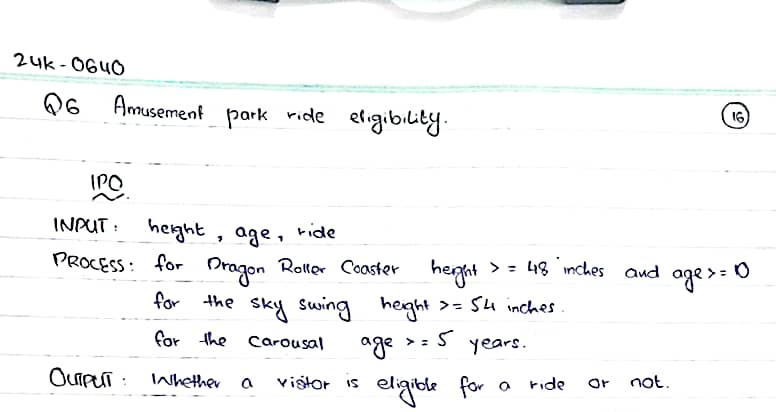 24K-0640
Q6 Amusement park ride eligibility.
16
IPO
INPUT: height, age, ride
PROCESS: for Dragon Roller Coaster height >= 48 inches and age >= 10
for the sky swing height >= 54 inches.
for the carousal age >= 5 years.
OUTPUT: Whether a visitor is eligible for a ride or not.